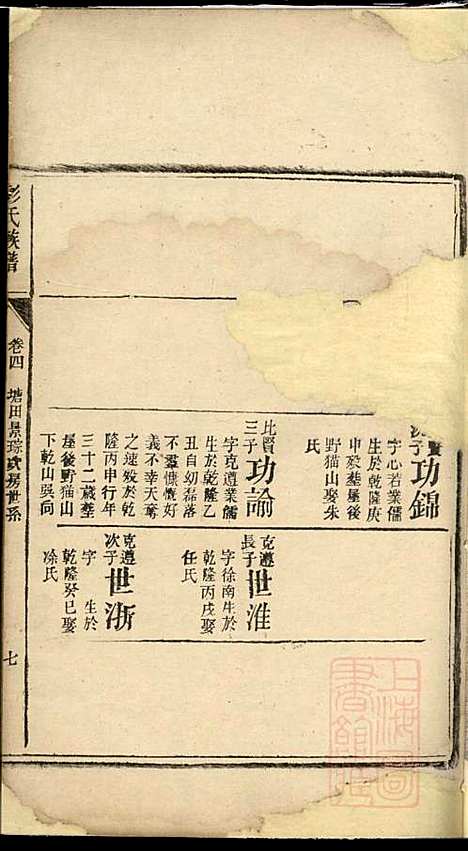 彭氏族譜
卷四
塘田景琮
房世系
七
次子
功錦
字心若業儒
生於乾隆庚
申歿塟屋後
野猫山娶朱
氏
比賢三子
功論
字克遵業儒
生於乾隆乙
丑自幼磊落
不羣慷慨好
義不幸天奪
之速歿於乾
隆丙申行年
三十二歲塟
屋後野猫山
下乾山吳向
克遵長子
世淮
字徐南生於
乾隆丙戌娶
任氏
克遵次子
世浙
字 生於
乾隆癸巳娶
凃氏
上海圖書館藏